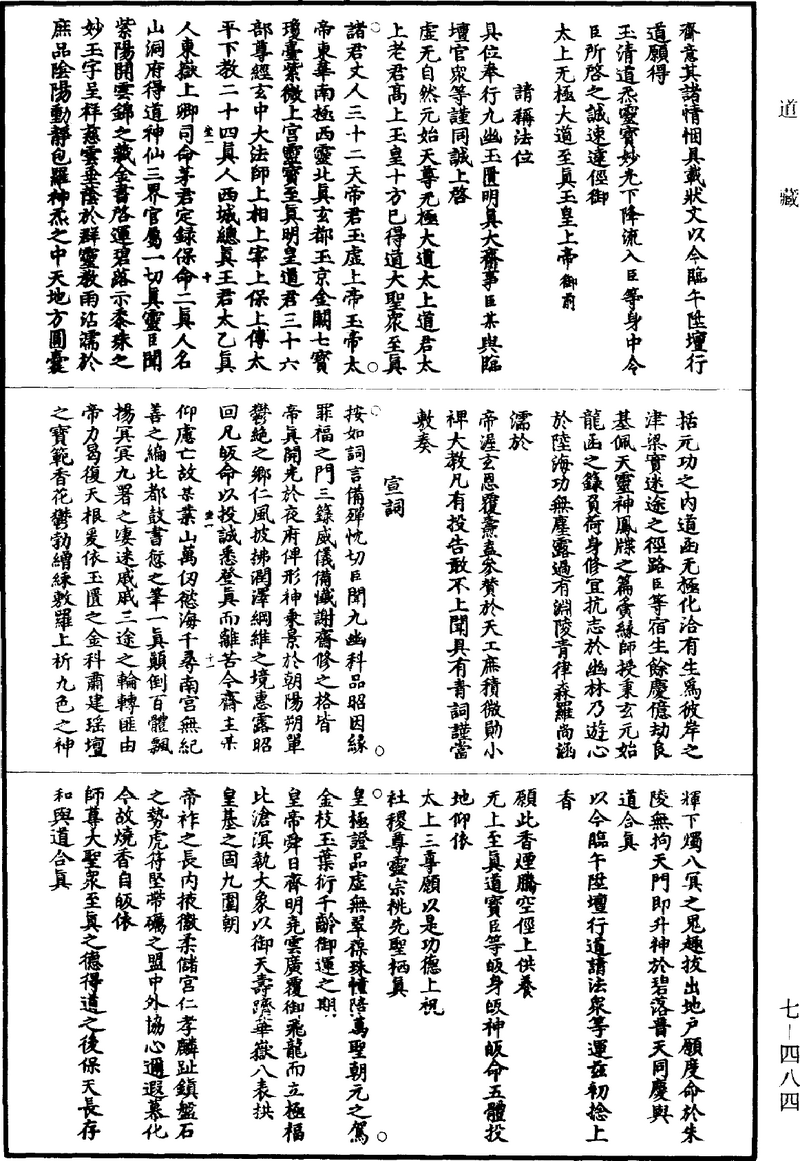 道藏
齋意其諸情悃具載狀文以今臨午陞壇行
道願得
玉清道炁靈寶妙光下降流入臣等身中令
臣所啓之誠速達徑御
太上无極大道至真玉皇上帝御前
請稱法位
具位奉行九幽玉匱明真大齋事臣某與臨
壇官衆等謹同誠上啓
虛无自然元始天尊无極大道太上道君太
上老君高上玉皇十方已得道大聖衆至真
諸君丈人三十二天帝君玉虛上帝玉帝太
帝東華南極西靈北真玄都玉京金闕七寶
瓊臺紫微上宮靈寶至真明皇道君三十六
部尊經玄中大法師上相上宰上保上傅太
平下教二十四真人西城總真王君太乙真
人東嶽上卿司命茅君定錄保命二真人名
山洞府得道神仙三界官屬一切真靈臣聞
紫陽開雲錦之藏金書啓運碧落示黍珠之
妙玉字呈祥慈雲垂蔭於群靈教雨沾濡於
庶品陰陽動靜包羅神炁之中天地方圓囊
括元功之内道函无極化洽有生爲彼岸之
津梁實迷途之徑路臣等宿生餘慶億劫良
基佩天靈神鳳牒之篇夤緣師授秉玄元始
龍函之籙負荷身修宜抗志於幽林乃遊心
於陸海功無塵露過有淵陵青律森羅尚涵
濡於
帝渥玄恩覆燾蓋參贊於天工庶積微勛小
裨大教凡有投告敢不上聞具有青詞謹當
敷奏
宣詞
按如詞言備殫忱切臣聞九幽科品昭因緣
罪福之門三籙威儀備懺謝齋修之格皆
帝真開光於夜府俾形神乘景於朝陽朔單
鬱絶之鄉仁風披拂潤澤綱維之境惠露昭
回凡皈命以投誠悉登真而離苦今齋主某
仰慮亡故某業山萬仞慾海千尋南宮無紀
善之編北都鼓書愆之筆一真顛倒百體飄
揚冥冥九署之淒迷戚戚三途之輪轉匪由
帝力曷復天根爰依玉匱之金科肅建瑶壇
之寶範香花鬱勃繒綵敷羅上祈九色之神
輝下燭八冥之鬼趣拔出地戶願度命於朱
陵無拘天門即升神於碧落普天同慶與
道合真
以今臨午陞壇行道請法衆等運玆初捻上
香
願此香煙騰空徑上供養
无上至真道寶臣等皈身皈神皈命五體投
地仰依
太上三尊願以是功德上祝
社稷尊靈宗祧先聖栖真
皇極證品虛無翠葆珠幢陪萬聖朝元之駕
金枝玉葉衍千齡御運之期
皇帝舜日齊明堯雲廣覆御飛龍而立極福
比滄溟執大象以御天壽躋華嶽八表拱
皇基之固九圍朝
帝祚之長内掖徽柔儲宮仁孝麟趾鎮盤石
之勢虎符堅帶礪之盟中外協心邇遐慕化
今故燒香自皈依
師尊大聖衆至真之德得道之後保天長存
和與道合真
七－四八四